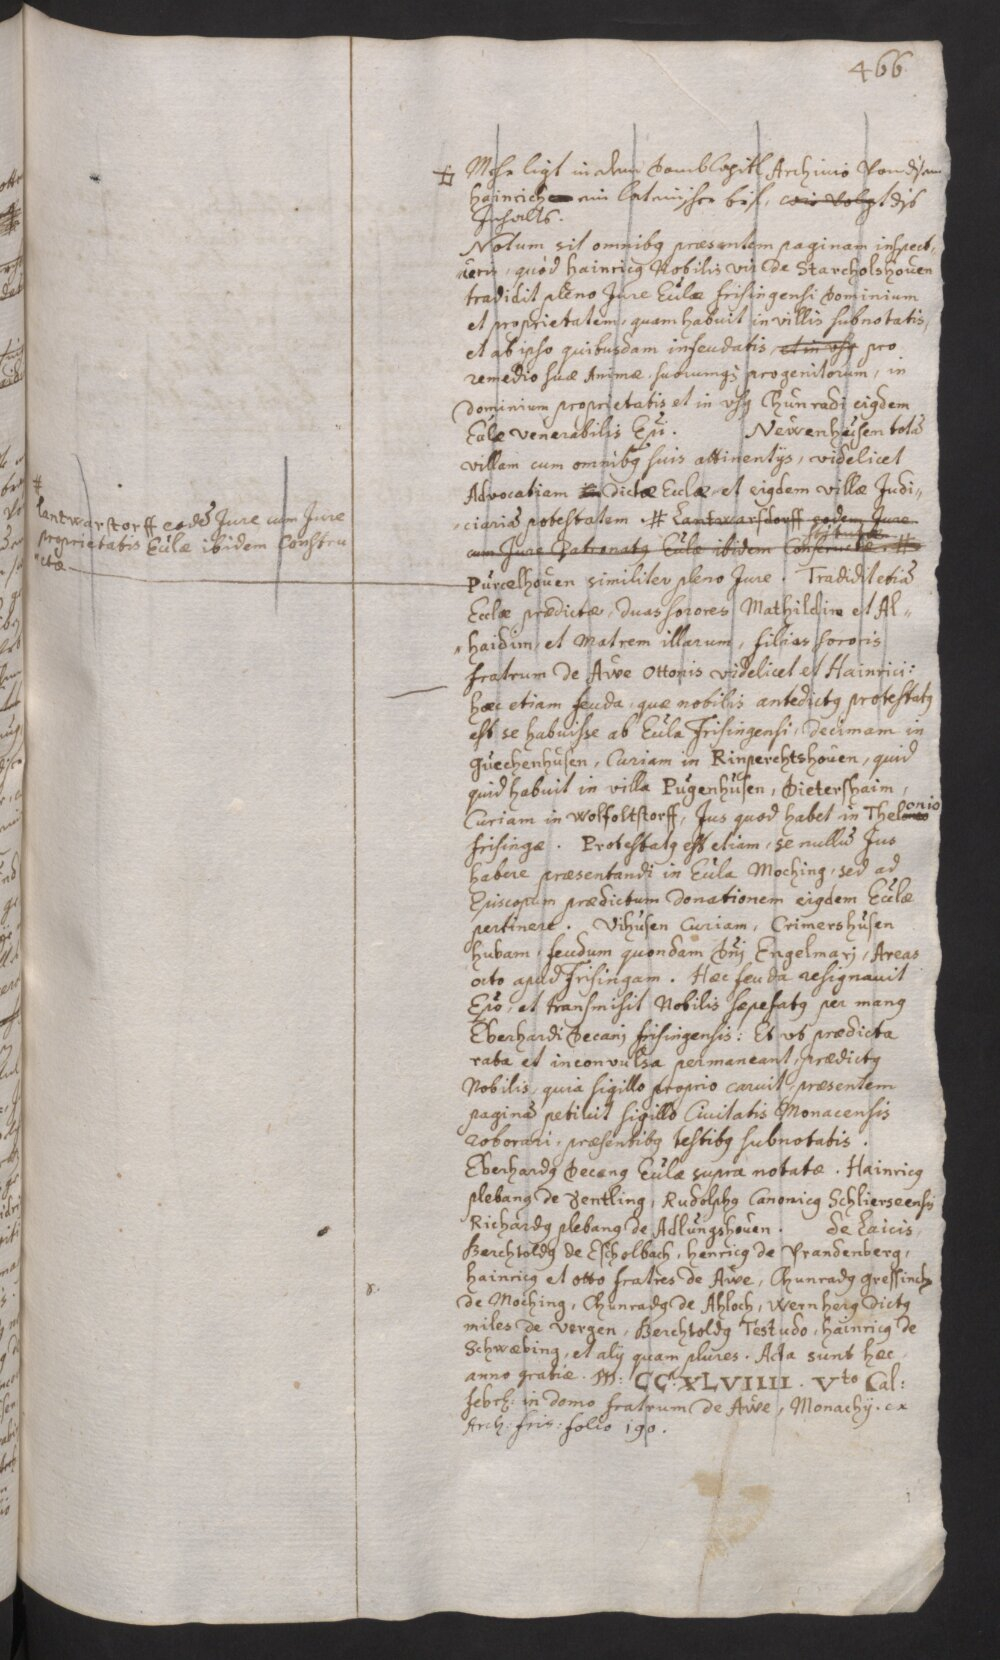 466
# Mehr ligt in dem Dombcapitl Archivio von disem
Hainrich ein lateinischer brif, wie volgt dis
Inhalts.
Notum sit omnibq præsentem paginam inspect„
uris, quòd Hainricq Nobilis vir de Starcholshouen
tradidit pleno Jure Eclæ frisingensi Dominium
et proprietatem, quam habuit in villis subnotatis,
et ab ipso quibusdam infeudatis, et in vsq pro
remedio suæ Animæ, suorumq; progenitorum, in
Dominium proprietatis et in vsq Chunradi eiqdem
Eclæ venerabilis Epi. Newenhusen totã
villam cum omnibq suis attinentijs, videlicet
Advocatiam dictæ Ecclæ, et eiqdem villæ Judi„
„ciariã potestatem. # Lantwarsdorff eodem Jure
cum Jure Patronatq Eclæ ibidem Constructæ. #
#
Lantwarstorff eodẽ Jure cum Jure
proprietatis Eclæ ibidem Constru
„ctæ
Purcelhouen similiter pleno Jure. Tradidit etiã
Ecclæ prædictæ, duas sorores Mathildim et Al„
„haidim, et Matrem illarum, filias sororis
fratrum de Awe Ottonis videlicet et Hainrici:
hæc etiam feuda, quæ nobilis antedictq protestatq
est se habuisse ab Ecla Frisingensi, Decimam in
Guechenhusen, Curiam in Rinperchtshouen, quid
quid habuit in villa Pugenhusen, Dietershaim,
Curiam in Wolfoltstorff, Jus quod habet in Thelonio
frisingæ. Protestatq est etiam, se nullũ Jus
habere præsentandi in Ecla Moching, sed ad
Episcopum prædictum donationem eiqdem Eclæ
pertinere. Vihusen Curiam, Crimershusen
hubam, feudum quondam Dñj Engelmarj, Areas
octo apud Frisingam. Hæc feuda resignauit
Epo, et transmisit Nobilis sæpefatq per manq
Eberhardi Decanj frisingensis: Et vt prædicta
rata et inconvulsa permaneant, prædictq
Nobilis, quia sigillo proprio caruit, præsentem
paginã petiuit sigillo Ciuitatis Monacensis
roborari, præsentibq testibq subnotatis.
Eberhardq Decanq Eclæ supra notatæ. Hainricq
plebanq de Sentling, Rudolphq Canonicq Schlierseensis
Richardq plebanq de Adlungshouen. de Laicis,
Berchtoldq de Escholbach, Henricq de Prandenberg,
Hainricq et Otto fratres de Awe, Chunradq
de Moching, Chunradq de Ahloch, Wernherq dictq
miles de Vergen, Berchtoldq Testudo, Hainricq de
Schwæbing, et alij quam plures. Acta sunt hæc
anno gratiæ. M: CC. XLVIIII. Vto Cal:
febr: in domo fratrum de Awe, Monachij. ex
Arch: fris: folio 190.